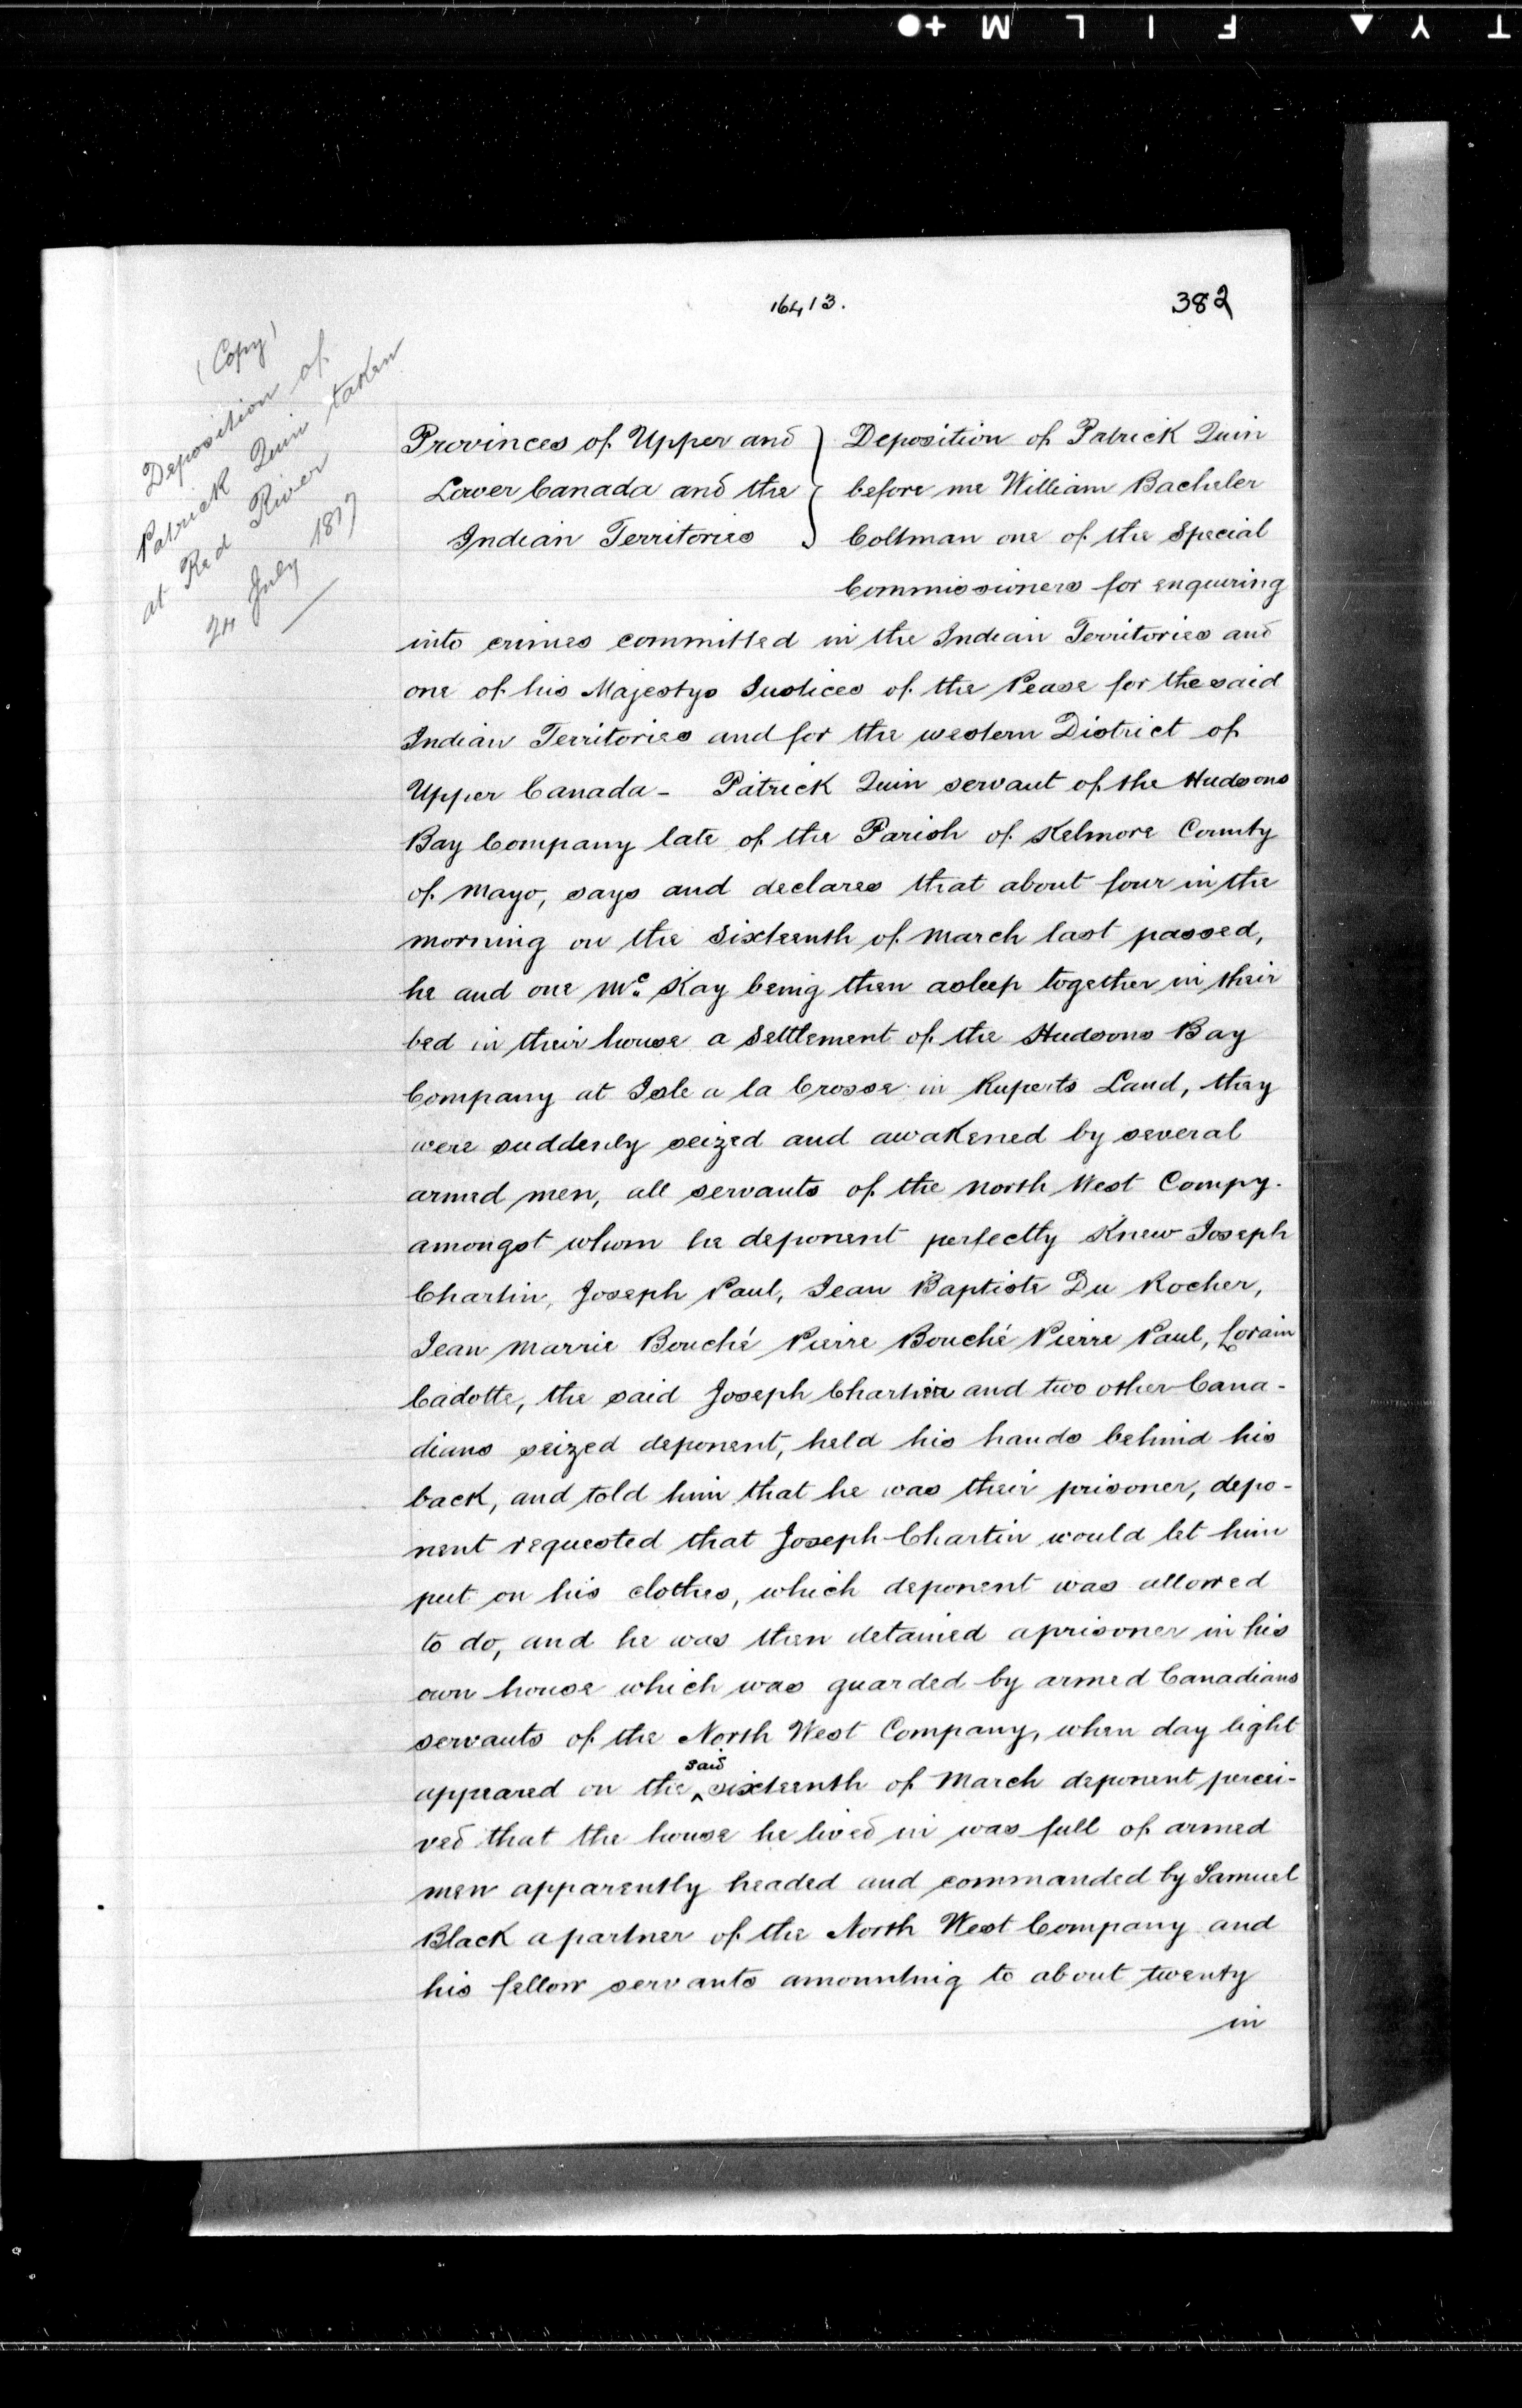 16413.
382
(Copy)
Deposition of
Patrick Quin taken
at Red River
24 July 1817
Provinces of Upper and } Deposition of Patrick Quin
Lower Canada and the } before me William Bacheler
Indian Territories } Coltman one of the Special
Commissioners for enquiring
into crimes committed in the Indian Territories and
one of his Majestys Justices of the Pease for the said
Indian Territories and for the western District of
Upper Canada - Patrick Quin servant of the Hudsons
Bay Company late of the Parish of Kelmore County
of Mayo, says and declares that about four in the
morning on the Sixteenth of March last passed,
he and one Mc. Kay being then asleep together in their
bed in their house a Settlement of the Hudsons Bay
Company at Isle a la Crosse in Ruperts Land, they
were suddenly seized and awakened by several
armed men, all servants of the North West Compy.
amongst whom he deponent perfectly knew Joseph
Chartin, Joseph Paul, Jean Baptiste Du Rocher,
Jean Marrie Bouché Pierre Bouché Pierre Paul, Lorain
Cadotte, the said Joseph Chartin and two other Cana-
dians seized deponent, held his hands behind his
back, and told him that he was their prisoner, depo-
nent requested that Joseph Chartin would let him
put on his clothes, which deponent was allowed
to do, and he was then detained a prisoner in his
own house which was guarded by armed Canadians
servants of the North West Company, when day light
appeared on the said sixteenth of March deponent percei-
ved that the house he lived in was full of armed
men apparently headed and commanded by Samuel
Black a partner of the North West Company and
his fellow servants amounting to about twenty
in